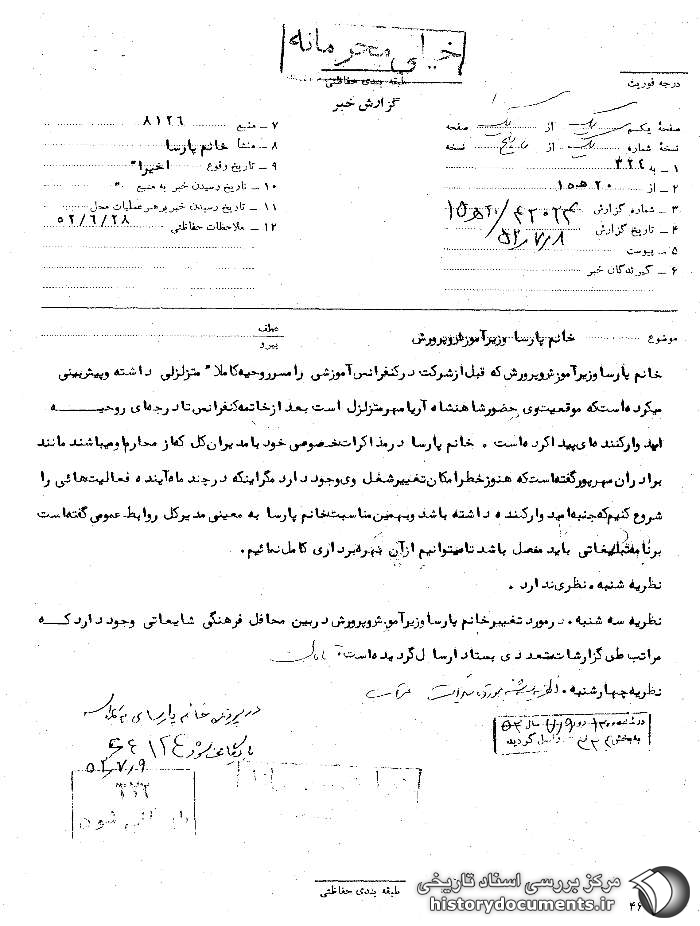 خیلی محرمانه
طبقه بندی حفاظتی
گزارش خبر
درجه فوریت
صفحه یکم از یک صفحه
نسخه شماره یک از پنج نسخه
۱ ـ به ۳۲۲
۲ ـ از ۲۰ ه‍ ۱۵
۳ ـ شماره گزارش
۴ ـ تاریخ گزارش ۵۲٫۷٫۸
۵ ـ پیوست
۶ ـ گیرندگان خبر
۷ ـ منبع ۸۱۲۶
۸ ـ منشأ خانم پارسا
۹ ـ تاریخ وقوع اخیرا"
۱۰ ـ تاریخ رسیدن خبر به منبع "
۱۱ ـ تاریخ رسیدن خبر برهبر عملیات محل
۱۲ ـ ملاحظات حفاظتی ۵۲/۶/۲۸
موضوع خانم پارسا وزیر آموزش و پرورش
عطف
پیرو
خانم پارسا وزیر آموزش و پرورش که قبل از شرکت در کنفرانس آموزشی رامسر روحیه کاملا" متزلزلی داشته و پیش بینی
میکرده است که موقعیت وی حضور شاهنشاه آریامهر متزلزل است بعد از خاتمه کنفرانس تا درجه ای روحیه
امیدوارکننده ای پیدا کرده است . خانم پارسا در مذاکرات خصوصی خود با مدیران کل که از محارم او میباشند مانند
برادران مهرپور گفته است که هنوز خطر امکان تغییر شغل وی وجود دارد مگر اینکه در چند ماه آینده فعالیت هائی را
شروع کنیم که جنبه امیدوارکننده داشته باشد و بهمین مناسبت خانم پارسا به معینی مدیر کل روابط عمومی گفته است
برنامه تبلیغاتی باید مفصل باشد تا میتوانیم از آن بهره برداری کامل نمائیم .
نظریه شنبه . نظری ندارد .
نظریه سه شنبه . در مورد تغییر خانم پارسا وزیر آموزش و پرورش در بین محافل فرهنگی شایعاتی وجود دارد که
مراتب طی گزارشات متعددی بستاد ارسال گردیده است .
نظریه چهارشنبه .
در پرونده خانم پارسای
بایگانی شود
۵۲٫۷٫۹
به بخش ۳۲۲ واصل گردید
خیلی محرمانه
طبقه بندی حفاظتی
مرکز بررسی اسناد تاریخی
historydocuments.ir